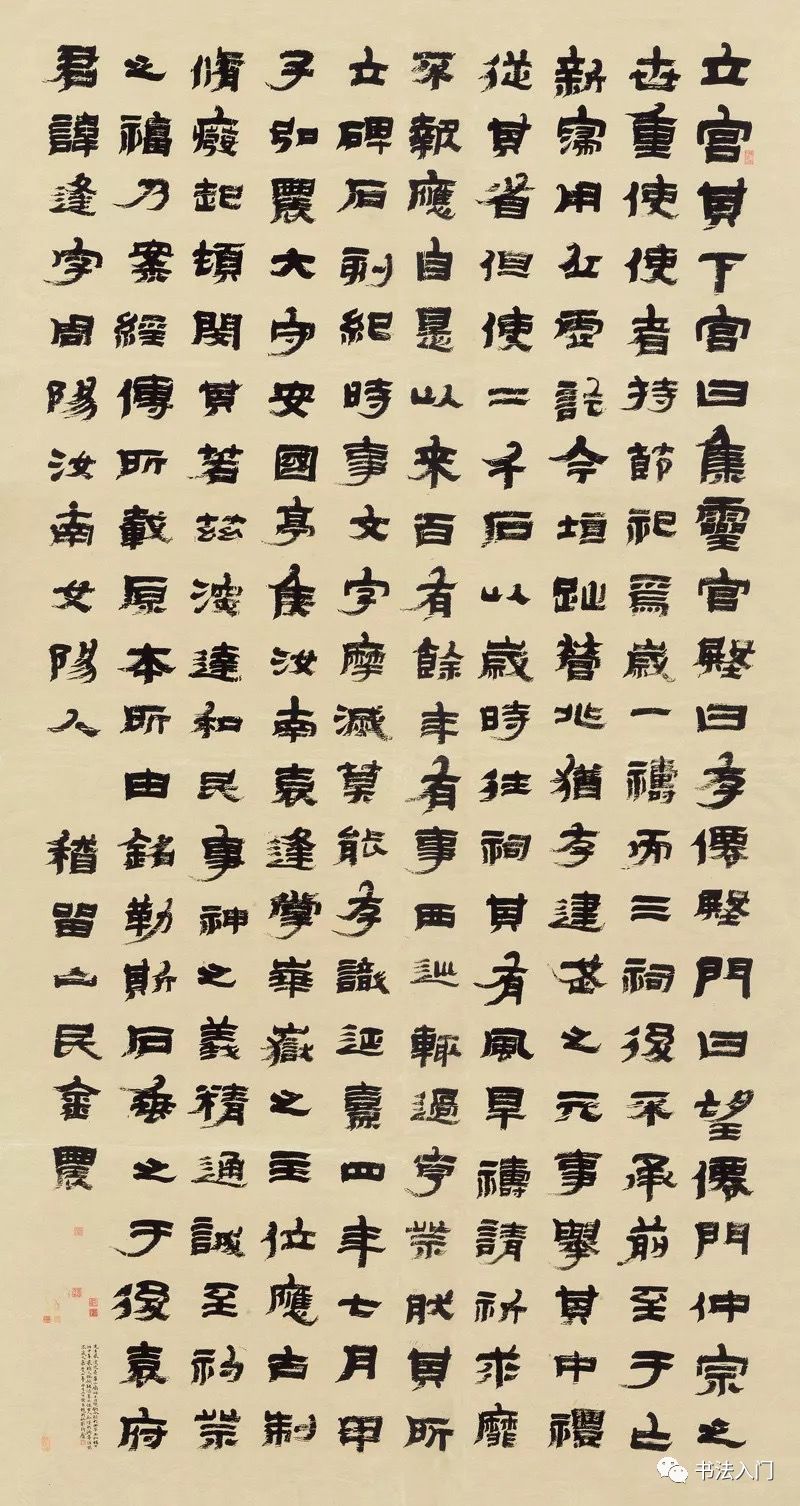 立宮其下宮曰集靈宮壂曰存僊壂門曰望僊門仲宗之
世重使使者持節祀焉歲一禱而三祠後不承前至于亡
新寖用丘虛訖今垣趾營兆猶存建武之元事舉其中禮
從其省但使二千石以歲時往祠其有風旱禱請祈求靡
不報應自是以来百有餘年有事西巡輒過亨祭然其所
立碑石刻紀時事文字摩滅莫能存識延熹四年七月甲
子弘農大守安國亭侯汝南袁逢掌華嶽之主位應古制
脩廢起頓閔其若茲深達和民事神之義精通誠至礿祭
之福乃案經傳所載原本所由銘勒斯石垂之于後袁府
君諱逢字周陽汝南女陽人 稽留山民金農
书法入门